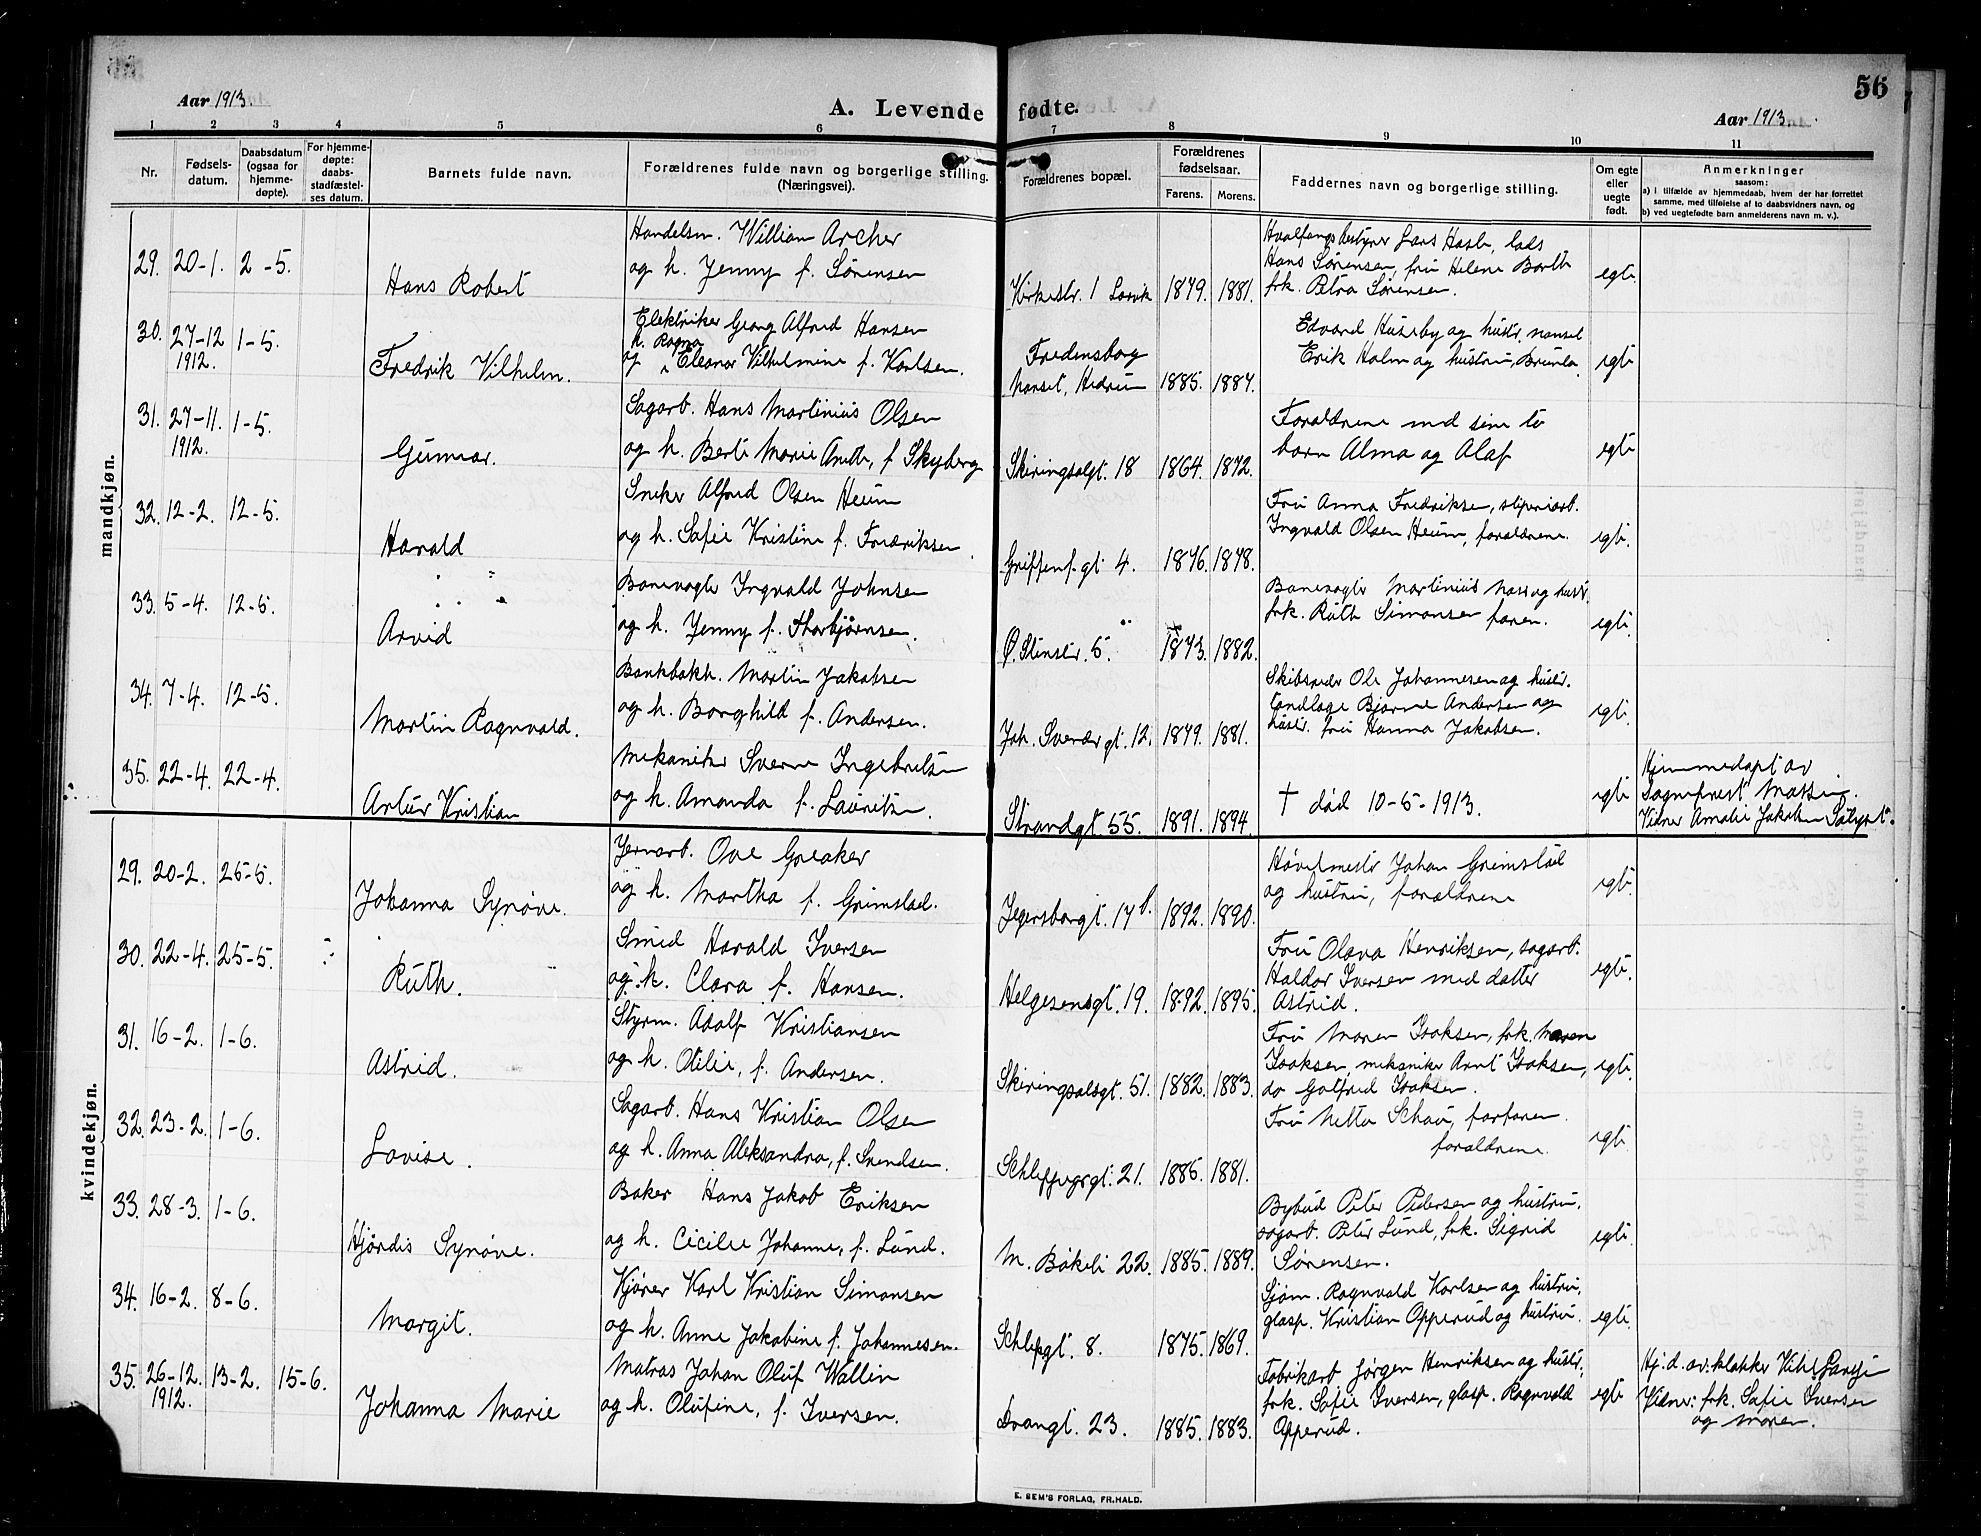 56
Aar 1913.
A. Levende fødte.
Aar 1913.
1 2 3 4 5 6 7 8 9 10 11
Nr.
Fødsels-
datum.
Daabsdatum
(ogsaa for
hjemme-
døpte).
For hjemme-
døpte:
daabs-
stadfæstel-
ses datum.
Barnets fulde navn.
Forældrenes fulde navn og borgerlige stilling.
(Næringsvei).
Forældrenes bopæl.
Forældrenes
fødselsaar.
Farens. Morens.
Faddernes navn og borgerlige stilling.
Om egte
eller
uegte
født.
Anmerkninger
saasom:
a) i tilfælde av hjemmedaab, hvem der har forrettet
samme, med tilføielse af to daabsvidners navn, og
b) ved uegtefødte barn anmelderens navn m. v.).
mandkjøn.
29. 20-1. 2-5.
Hans Robert
Handelsm. William Archer
og h. Jenny f. Sørensen
Kirkestr. 1 Larvik 1879. 1881.
Hvalfangstbestyrer Lars Hasle, lods
Hans Sørensen, fru Helene Barth
frk. Petra Sørensen.
egte.
30. 27-12 1-5.
1912.
Fredrik Vilhelm.
Elektriker Georg Alfred Hansen
h. Ragna
og Eleanor Vilhelmine f. Karlsen.
Fredensborg
Nanset, Hedrum 1885. 1887.
Edvard Huseby og hustr. nanset
Erik Holm og hustru, Brunla.
egte
31. 27-11. 1-5.
1912.
Gunnar.
Sagarb. Hans Martinius Olsen
og h. Berte Marie Anette, f Skyberg
Skiringsalgt. 18 1864. 1872.
Forældrene med sine to
barn Alma og Olaf
egte
32. 12-2. 12-5.
Harald
Sneker Alfred Olsen Heum
og h. Sofie Kristine f. Fredriksen.
Griffenf.gt 4. 1876. 1878.
Fru Anna Fredriksen, sliperiarb.
Ingvald Olsen Heum, forældrene.
egte.
33. 5-4. 12-5.
Arvid
Banevogter Ingvald Johnsen
og h. Jenny f. Thorbjørnsen.
Ø. Stenstr. 5. 1873. 1882.
Banevogter Martinius Næss og hustr.
frk. Ruth Simonsen faren.
egte.
34. 7-4. 12-5.
Martin Ragnvald.
Bankbokh. Martin Jakobsen
og h. Borghild f. Andersen.
Joh. Sverdr gt. 12. 1879. 1881.
Skibsreder Ole Johannesen og hustr.
tandlæge Bjarne Andersen og
hustr. fru Hanna Jakobsen.
egte.
35. 22-4. 22-4.
Artur Kristian
Mekaniker Sverre Ingebretsen
og h. Amanda f. Lauritsen.
Strandgt 55. 1891. 1894.
† død 10-5-1913.
egte
Hjemmedøpt av
Sogneprest
Vidner Amalie Jakobsen
kvindekjøn.
29. 20-2. 25-5.
Johanna Synøve.
Jernarb. Ove Greaker
og h. Martha f. Grimstad.
Jegersborgt. 14b. 1892. 1890.
Høvelmester Johan Grimstad
og hustru, forældrene
egte.
30. 22-4. 25-5.
Ruth.
Smed Harald Iversen
og h. Clara f. Hansen.
Helgesensgt. 19. 1892. 1895.
Fru Olava Henriksen, sagarb.
Haldor Iversen med datter
Astrid.
egte.
31. 16-2. 1-6.
Astrid.
Styrm. Adolf Kristiansen
og h. Otilie, f. Andersen.
Skiringsalsgt. 51. 1882. 1883.
Fru Maren Isaksen, frk. Maren
Isaksen, mekaniker Arnt Isaksen,
do Gotfred Isaksen.
egte.
32. 23-2. 1-6.
Lovise.
Sagarb. Hans Kristian Olsen
og h. Anna Aleksandra, f. Svendsen.
21. 1885. 1881.
Fru Netta Schau, farfaren
forældrene.
egte.
33. 28-3. 1-6.
Hjørdis Synøve.
Baker Hans Jakob Eriksen
og h. Cicilie Johanne, f. Lund.
M. Bøkeli 22. 1885. 1889.
Bybud Peter Pedersen og hustru,
sagarb. Peter Lund, frk. Sigrid
Sørensen.
egte.
34. 16-2. 8-6.
Margit.
Kjører Karl Kristian Simonsen
og h. Anne Jakobine f. Johannesen.
Schlepgt. 8. 1875. 1869.
Sjøm. Ragnvald Karlsen og hustru,
glasp. Kristian Opperud og hustru.
egte.
35. 26-12. 13-2. 15-6.
1912.
Johanna Marie
Matros Johan Oluf Wallin
og h. Olufine, f. Iversen.
Trangt. 23. 1885. 1883.
Fabrikarb Jørgen Henriksen og hustr,
frk. Sofie Iversen, glasp. Ragnvald
Opperud.
egte
Hj. d. av: klokker
Vidner: frk. Sofie Iversen
og moren.
E. SEM'S FORLAG, FR.HALD.